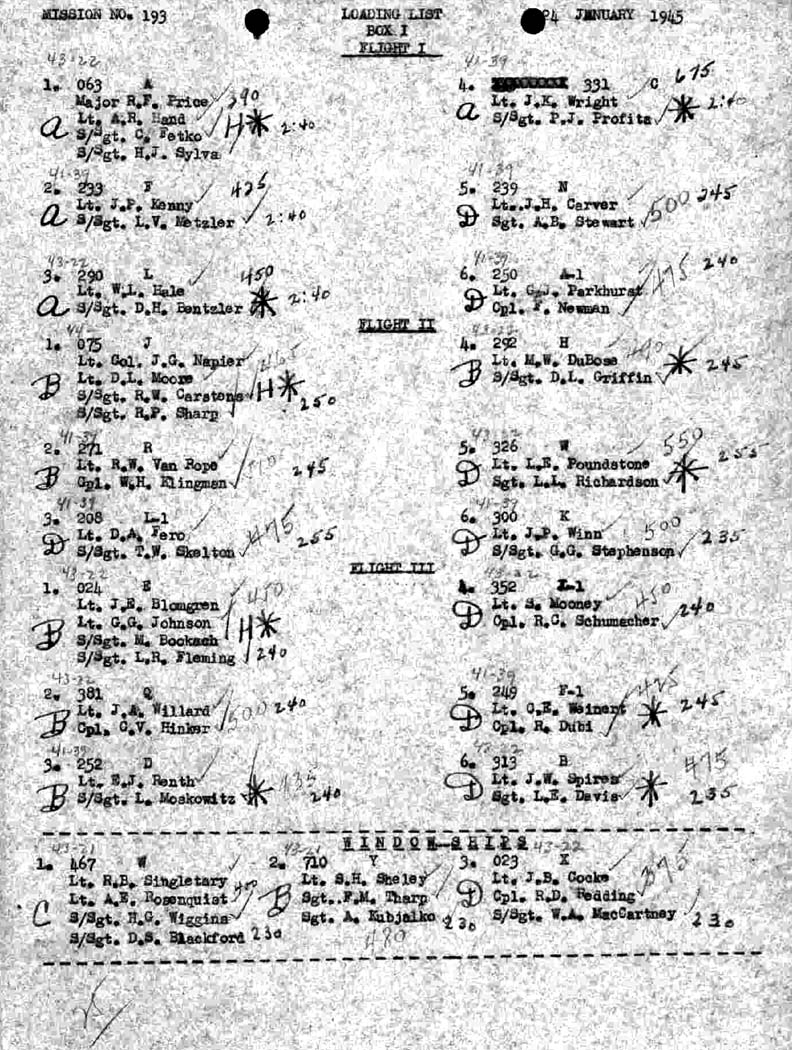 MISSION NO. 193
LOADING LIST
24 JANUARY 1945
BOX I
FLIGHT I
43-22
1. 063 A
Major R.F. Price
Lt. A.R. Hand
S/Sgt. C. Fetko
S/Sgt. H.J. Sylva
a H* 2:40
41-39
4. 331 C 675
Lt. J.K. Wright
S/Sgt. P.J. Profita
a * 2:40
41-39
2. 233 F 425
Lt. J.P. Kenny
S/Sgt. L.V. Metzler
a 2:40
41-39
5. 239 N
Lt. J.H. Carver
Sgt. A.B. Stewart
D 500 245
43-22
3. 290 L 450
Lt. W.L. Hale
S/Sgt. D.H. Bentzler
a * 2:40
41-39
6. 250 A-1
Lt. G.J. Parkhurst
Cpl. F. Newman
D 475 240
FLIGHT II
44-
1. 075 J
Lt. Col. J.G. Napier
Lt. D.L. Moore
S/Sgt. R.W. Carstens
S/Sgt. R.P. Sharp
B 465 H* 250
43-22
4. 292 H
Lt. M.W. DuBose
S/Sgt. D.L. Griffin
B * 245
41-39
2. 271 R
Lt. R.W. Van Rope
Cpl. W.H. Klingman
B 245
43-22
5. 326 W
Lt. L.E. Poundstone
Sgt. L.L. Richardson
D 550 * 255
41-39
3. 208 L-1
Lt. D.A. Fero
S/Sgt. T.W. Skelton
D 475 255
41-39
6. 300 K
Lt. J.P. Winn
S/Sgt. G.G. Stephenson
D 500 235
FLIGHT III
43-22
1. 024 E
Lt. J.E. Blomgren
Lt. G.G. Johnson
S/Sgt. M. Bockach
S/Sgt. L.R. Fleming
B 450 H* 240
43-22
4. 352 I-1
Lt. S. Mooney
Cpl. R.C. Schumacher
D 450 240
43-22
2. 381 Q
Lt. J.A. Willard
Cpl. C.V. Hinker
B 500 240
41-39
5. 249 F-1
Lt. C.E. Weinert
Cpl. R. Dubi
D 425 * 245
41-39
3. 252 D
Lt. E.J. Renth
S/Sgt. L. Moskowitz
B * 435 240
43-22
6. 313 B
Lt. J.W. Spires
Sgt. L.E. Davis
D 475 * 235
WINDOW SHIPS
43-21
1. 467 W
Lt. R.B. Singletary
Lt. A.E. Rosenquist
S/Sgt. H.G. Wiggins
S/Sgt. D.S. Blackford
C 230
43-21
2. 710 Y
Lt. S.H. Sheley
Sgt. F.M. Tharp
Sgt. A. Kubjalko
B 230
480
43-22
3. 023 X
Lt. J.B. Cocke
Cpl. R.D. Redding
S/Sgt. W.A. MacCartney
D 375 230